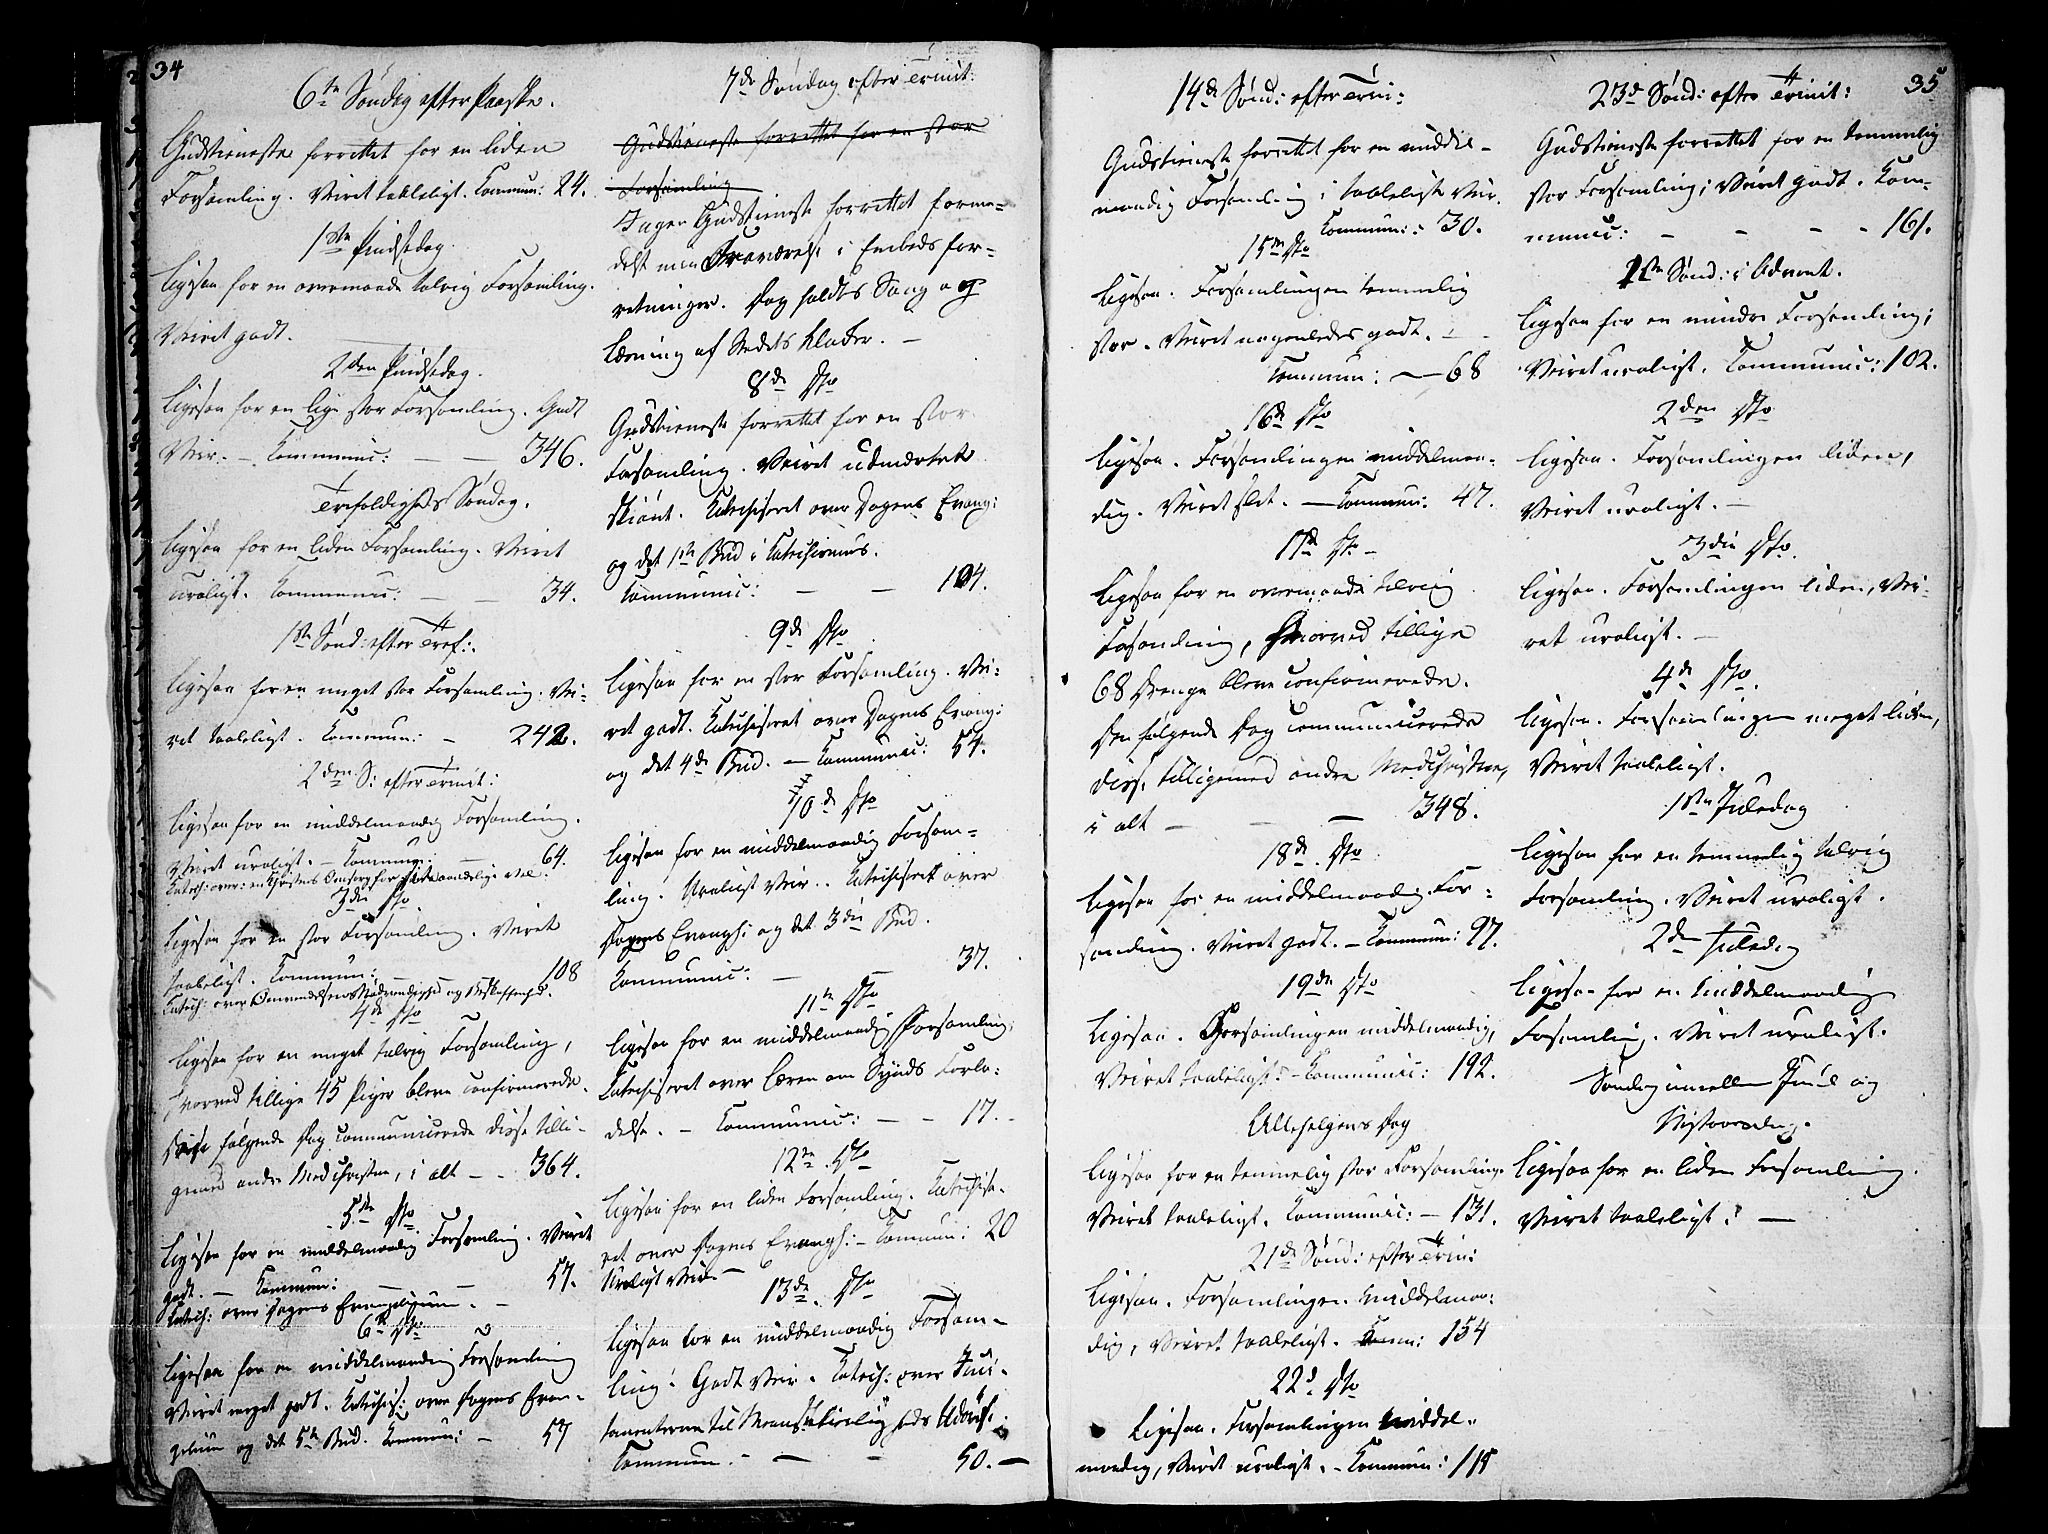 34
6te Søndag efter Paaske.
Gudstieneste forrettet for en liden
Forsamling. Veiret taaleligt. Commun: 24.
1ste Pindsedag.
Ligesaa for en overmaade talrig Forsamling.
Veiret godt.
2den Pindsedag.
Ligesaa for en lige stor Forsamling. Godt
Veir. – Communic: – – 346.
Trefoldigheds Søndag.
Ligesaa for en liden Forsamling. Veiret
uroligt. Communic: – – 34.
1ste Sønd: efter Tref:
Ligesaa for en meget stor Forsamling. Vei-
ret taaleligt. Commun: – 242.
2den S: efter Trinit:
Ligesaa for en middelmaadig Forsamling.
Veiret uroligt. – Commun: – 64.
Catech: over: en Christens Omsorg for sin aandelige Vel.
3die Dto.
Ligesaa for en stor Forsamling. Veiret
taaleligt. Commun: – 108
Catech: over Omvendelsens Nødvendighed og Beskaffenhed.
4de Dto
Ligesaa for en meget talrig Forsamling,
hvorved tillige 45 Piger bleve confirmerede.
følgende Dag communicerede disse tilli-
gemed andre Medchristne, i alt – – 364.
5te Dto
Ligesaa for en middelmaadig Forsamling. Veiret
godt. – Commun: – – 57.
Catech: over Dagens Evangelium. –
6te Dto
Ligesaa for en middelmaadig Forsamling
Veiret meget godt. Catechis: over Dagens Evan-
gelium og det 5te Bud. Commun: – 57
7de Søndag efter Trinit:
Gudstieneste forrettet for en stor
Forsamling
Ingen Gudstieneste forrettet forme-
delst min Fraværelse i Embedsfor-
retninger. Dog holdtes Sang og
Læsning af Stedets Klokker. –
8de Dto
Gudstieneste forrettet for en stor
Forsamling. Veiret udmærket
skiønt. Catechiseret over Dagens Evang:
og det 1ste Bud i Catechismus.
Communic: – – 104.
9de Dto
Ligesaa for en stor Forsamling. Vei-
ret godt. Catechiseret over Dagens Evang:
og det 4de Bud. – Communic: 54.
10de Dto
Ligesaa for en middelmaadig Forsam-
ling. Uroeligt Veir. Catechiseret over
Dagens Evangh: og det 3die Bud.
Communic: – – 37.
11te Dto
Ligesaa for en middelmaadig Forsamling.
Catechiseret over Læren om Synds Forla-
delse. – Communic: – – 17. –
12te Dto
Ligesaa for en liden Forsamling. Catechise-
ret over Dagens Evangh: – Commun: 20
Uroligt Veir. –
13de Dto
Ligesaa for en middelmaadig Forsam-
ling. Godt Veir. Catech: over
til
Commun. – – – 50. –
14de Sønd: efter Trin:
Gudstieneste forrettet for en middel-
maadig Forsamling i taaleligt Veir.
Commun: 30.
15te Dto
Ligesaa. Forsamlingen temmelig
stor. Veiret nogenledes godt. –
Commun: – 68
16de Dto
Ligesaa. Forsamlingen middelmaa-
dig. Veiret slet. – Commun: 47.
17de Dto –
Ligesaa for en overmaade talrig
Forsamling, hvorved tillige
68 Drenge bleve confirmerede.
Den følgende Dag communicerede
disse tilligemed andre Medchristne,
i alt – – – 348.
18de Dto
Ligesaa for en middelmaadig For-
samling. Veiret godt. – Commun: 97.
19de Dto
Ligesaa. Forsamlingen middelmaadig,
Veiret taaleligt. – Communic: 192.
Allehelgens Dag
Ligesaa for en temmelig stor Forsamling.
Veiret taaleligt. Communic: – 131.
21de Sønd: efter Trin:
Ligesaa. Forsamlingen middelmaa-
dig, Veiret taaleligt. Comm: 154
22de Dto
Ligesaa. Forsamlingen middel-
maadig, Veiret uroligt. – Commun: 115
35
23de Sønd: efter Trinit:
Gudstieneste forrettet for en temmelig
stor Forsamling; Veiret godt. Com-
munic: – – – – 161.
1ste Sønd: i Advent.
Ligesaa for en mindre Forsamling;
Veiret uroligt. Communic: 102.
2den Dto
Ligesaa. Forsamlingen liden,
Veiret uroligt. –
3die Dto.
Ligesaa. Forsamlingen liden, Vei-
ret uroligt. –
4de Dto.
Ligesaa. Forsamlingen meget liden,
Veiret taaleligt.
1ste Juledag
Ligesaa for en temmelig talrig
Forsamling. Veiret uroligt.
2den Juledag
Ligesaa for en middelmaadig
Forsamling. Veiret uroligt.
Søndag imellem Juul og
Nytaarsdag.
Ligesaa for en liden Forsamling.
Veiret taaleligt. –